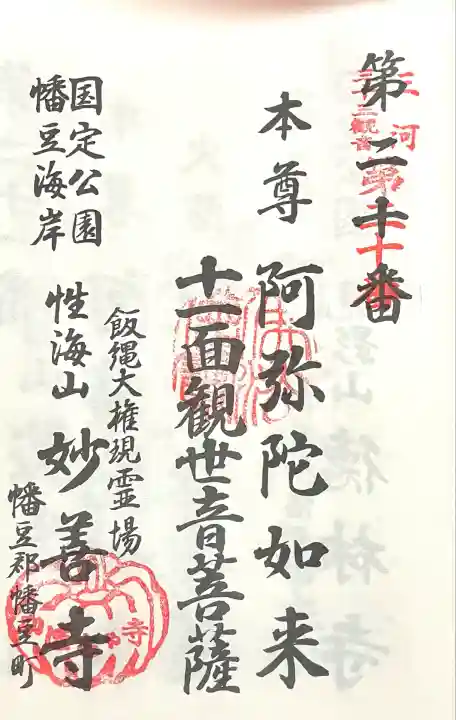 第二十番
三河
三十三観音
第二十番
本尊 阿弥陀如来
十一面観世音菩薩
飯縄大権現霊場
国定公園
幡豆海岸
性海山 妙善寺
幡豆郡幡豆町